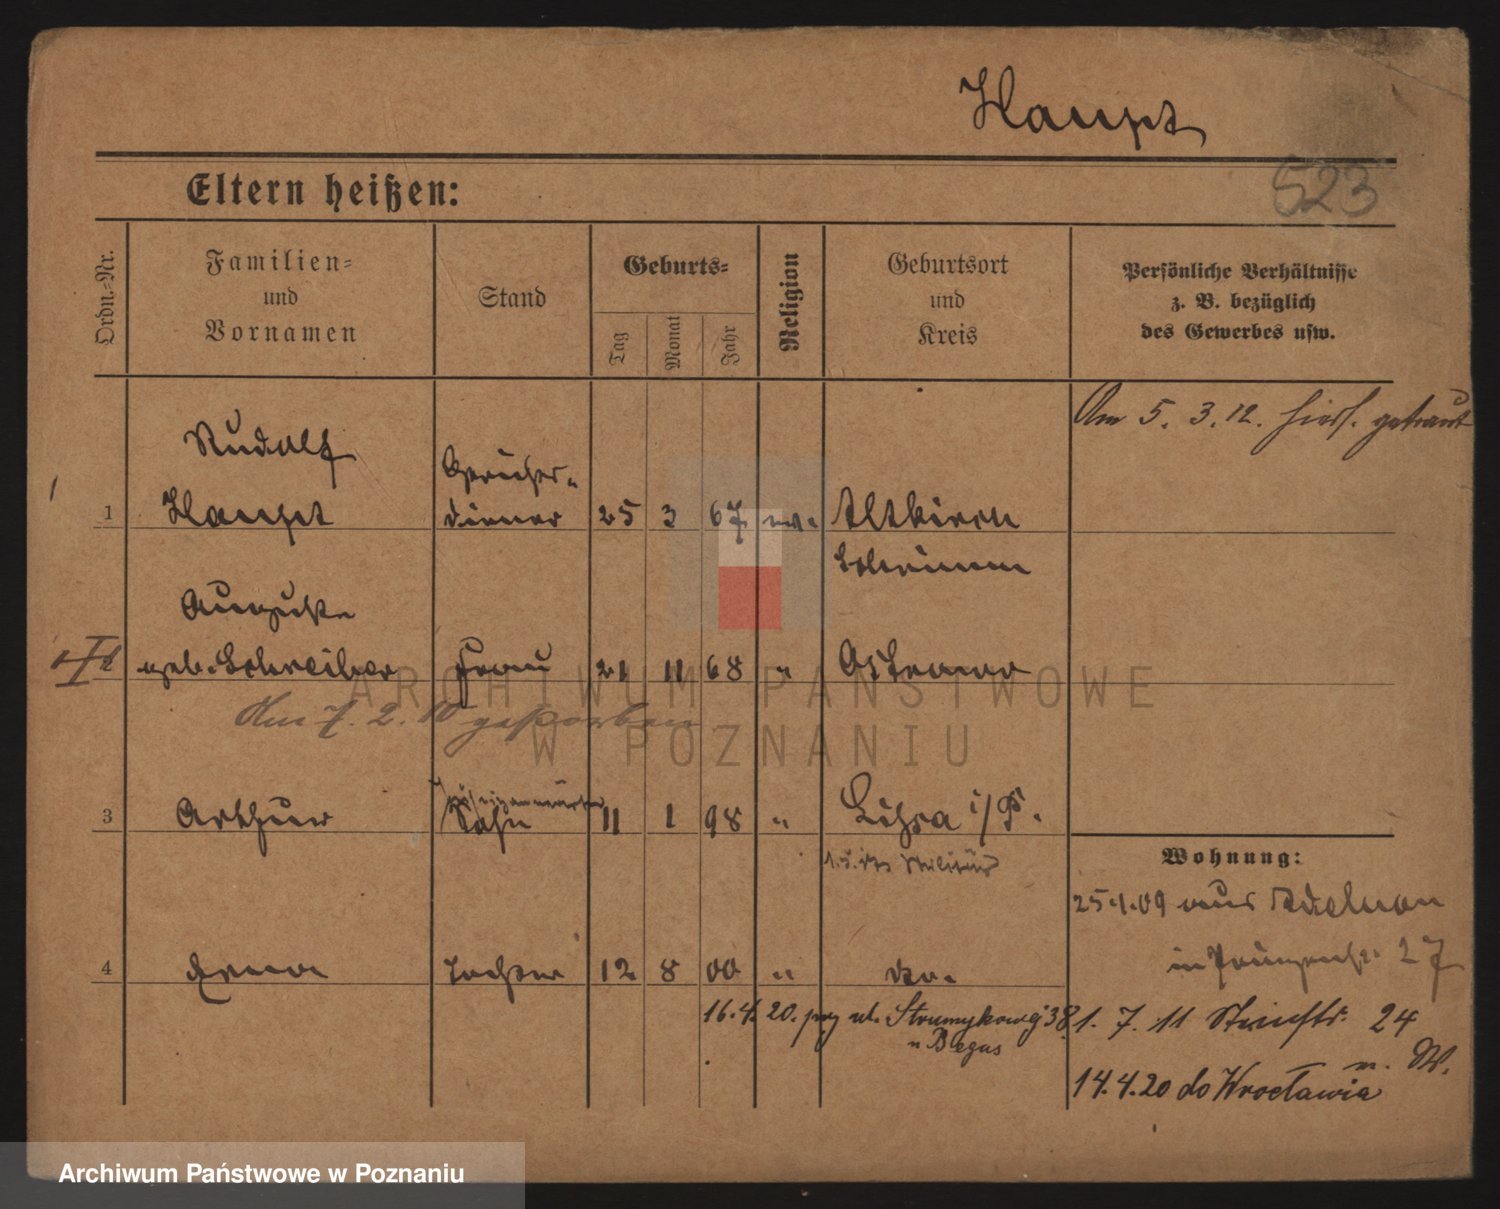 Haupt
523
Eltern heißen:
Ordn.-Nr.
Familien-
und
Vornamen
Stand
Geburts-
Tag
Monat
Jahr
Religion
Geburtsort
und
Kreis
Persönliche Verhältnisse
z. B. bezüglich
des Gewerbes usw.
Am 5. 3. 12. hiers. getraut
Rudolf
Gerichts-
1 Haupt diener 25 3 67 ev. Altkirch
Schrimm
Auguste
2 geb. Schreiber Frau 21 11 68 " Ostrowo
Am 7. 2. 10 gestorben
3 Arthur Sohn 11 1 98 " Lissa i/P.
Militär
Wohnung:
25.1.09 aus Adelnau
in 27
4 Erna Tochter 12 8 00 " do.
16.4.20. przy ul. Strumykowej 38.
u Begas
1. 7. 11 24
n. W.
14.4.20 do Wrocławia
ARCHIWUM PAŃSTWOWE
W POZNANIU
Archiwum Państwowe w Poznaniu